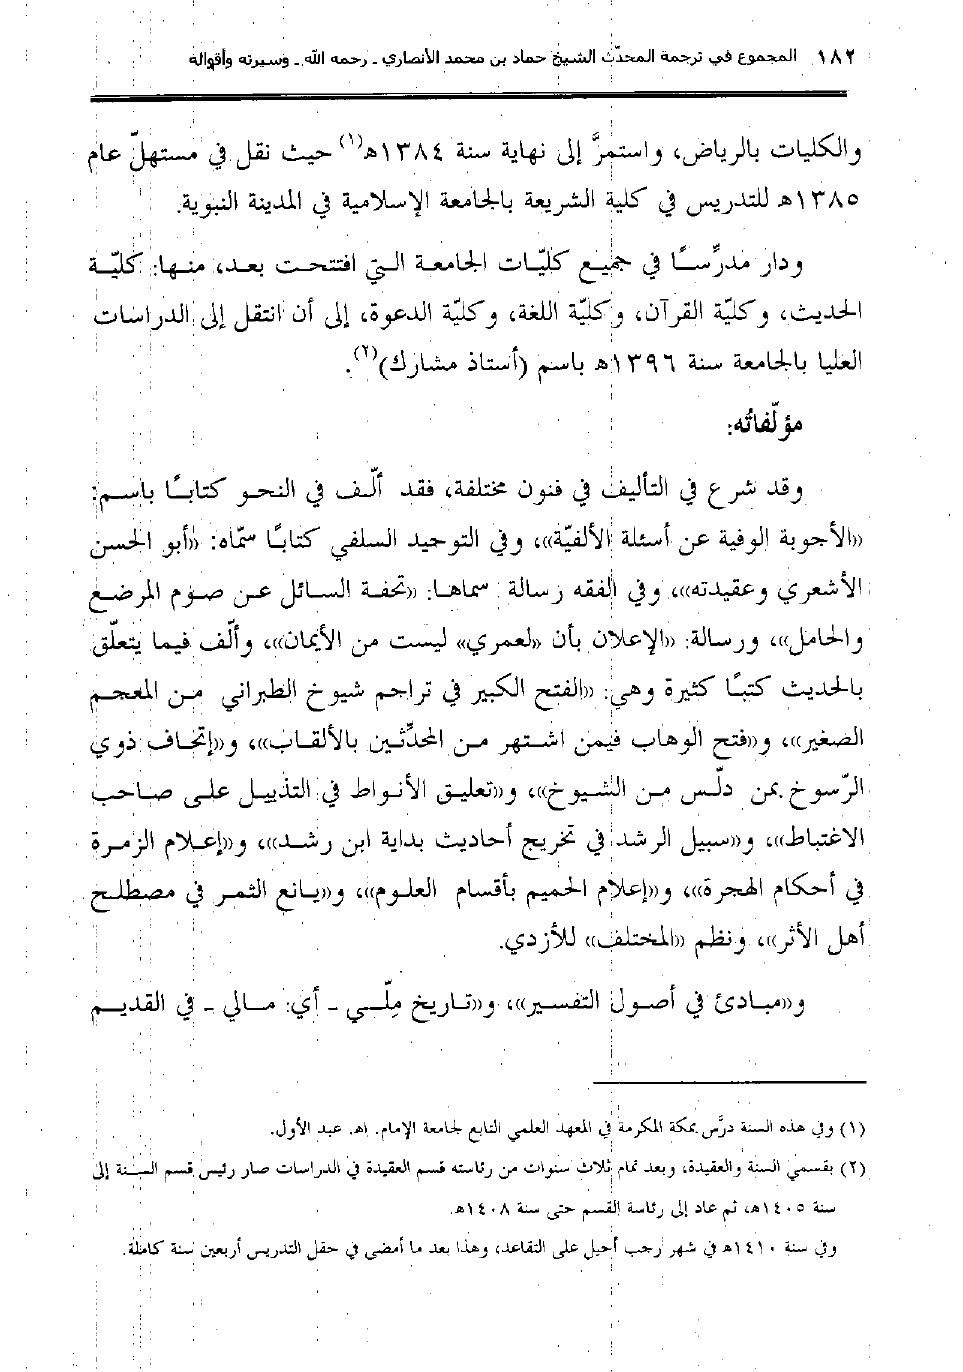 ١٨٢ المجموع في ترجمة المحدّث الشيخ حماد بن محمد الأنصاري ـ رحمه الله ـ وسيرته وأقواله
والكليات بالرياض، واستمرَّ إلى نهاية سنة ١٣٨٤هـ(١) حيث نقل في مستهلّ عام
١٣٨٥هـ للتدريس في كلية الشريعة بالجامعة الإسلامية في المدينة النبوية.
ودار مدرِّسًا في جميع كليّات الجامعة التي افتتحت بعد، منها: كليّة
الحديث، وكليّة القرآن، وكليّة اللغة، وكليّة الدعوة، إلى أن انتقل إلى الدراسات
العليا بالجامعة سنة ١٣٩٦هـ باسم (أستاذ مشارك)(٢).
مؤلّفاتُه:
وقد شرع في التأليف في فنون مختلفة، فقد ألّف في النحو كتابًا باسم:
«الأجوبة الوفية عن أسئلة الألفيّة»، وفي التوحيد السلفي كتابًا سمّاه: «أبو الحسن
الأشعري وعقيدته»، وفي الفقه رسالة سماها: «تحفة السائل عن صوم المرضع
والحامل»، ورسالة: «الإعلان بأن «لعمري» ليست من الأيمان»، وألّف فيما يتعلّق
بالحديث كتبًا كثيرة وهي: «الفتح الكبير في تراجم شيوخ الطبراني من المعجم
الصغير»، و«فتح الوهاب فيمن اشتهر من المحدِّثين بالألقاب»، و«إتحاف ذوي
الرّسوخ بمن دلّس من الشيوخ»، و«تعليق الأنواط في التذييل على صاحب
الاغتباط»، و«سبيل الرشد في تخريج أحاديث بداية ابن رشد»، و«إعلام الزمرة
في أحكام الهجرة»، و«إعلام الحميم بأقسام العلوم»، و«يانع الثمر في مصطلح
أهل الأثر»، ونظم «المختلف» للأزدي.
و«مبادئ في أصول التفسير»، و«تاريخ مِلّي ـ أي: مالي ـ في القديم
(١) وفي هذه السنة درَّس بمكة المكرمة في المعهد العلمي التابع لجامعة الإمام. اهـ. عبد الأول.
(٢) بقسمي السنة والعقيدة، وبعد تمام ثلاث سنوات من رئاسته قسم العقيدة في الدراسات صار رئيس قسم السنة إلى
سنة ١٤٠٥هـ، ثم عاد إلى رئاسة القسم حتى سنة ١٤٠٨هـ.
وفي سنة ١٤١٠هـ في شهر رجب أحيل على التقاعد، وهذا بعد ما أمضى في حقل التدريس أربعين سنة كاملة.